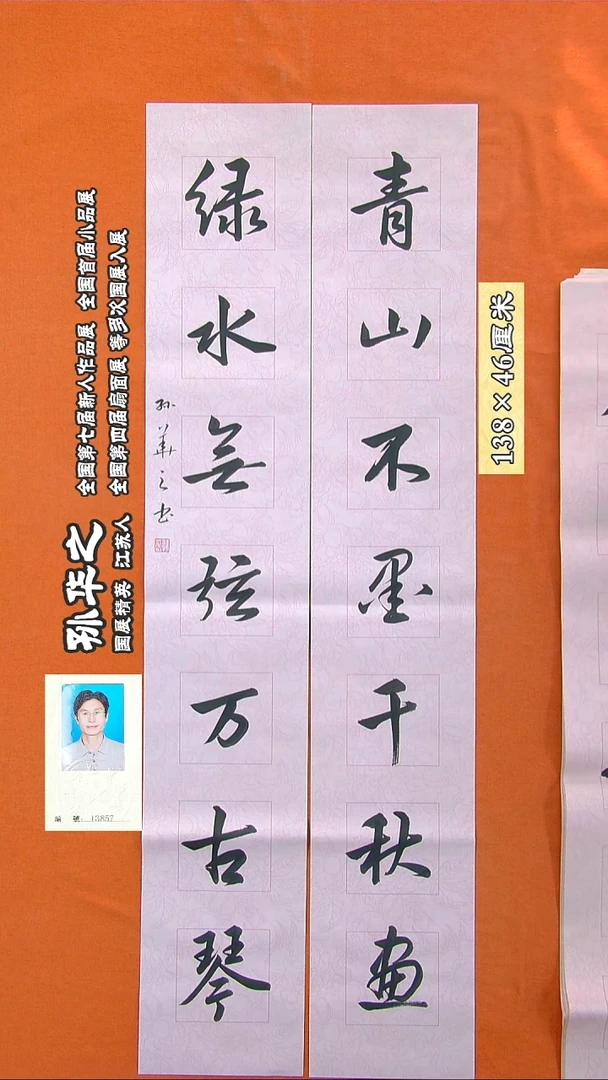 青山不墨千秋画
绿水無弦万古琴
孙華之书
138×46厘米
孙华之
国展精英 江苏人
全国第七届新人作品展 全国首届小品展
全国第四届扇面展 等多次国展入展
编 號: 13857